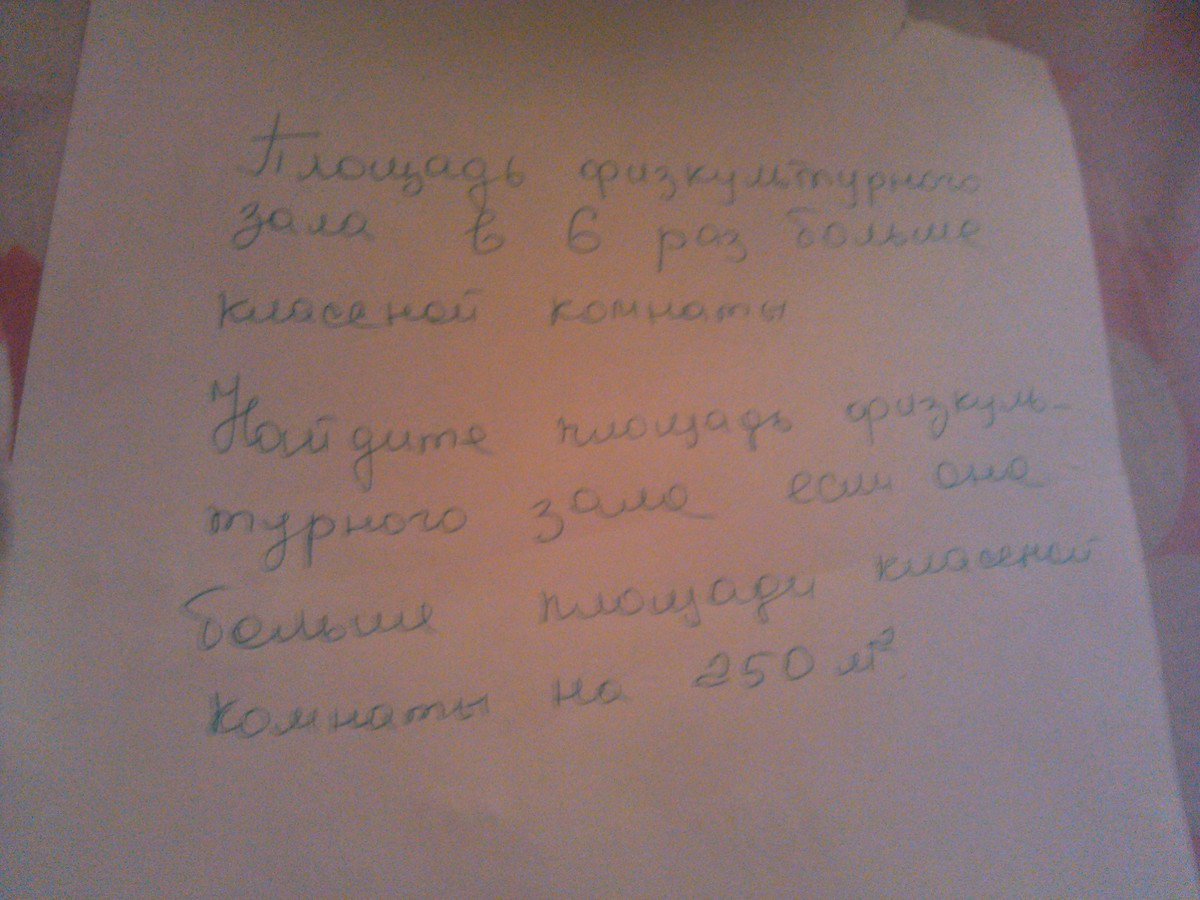 Площадь физкультурного
зала в 6 раз больше
класеной комнаты
Найдите площадь физкуль-
турного зала если она
больше площади класеной
комнаты на 250 м²